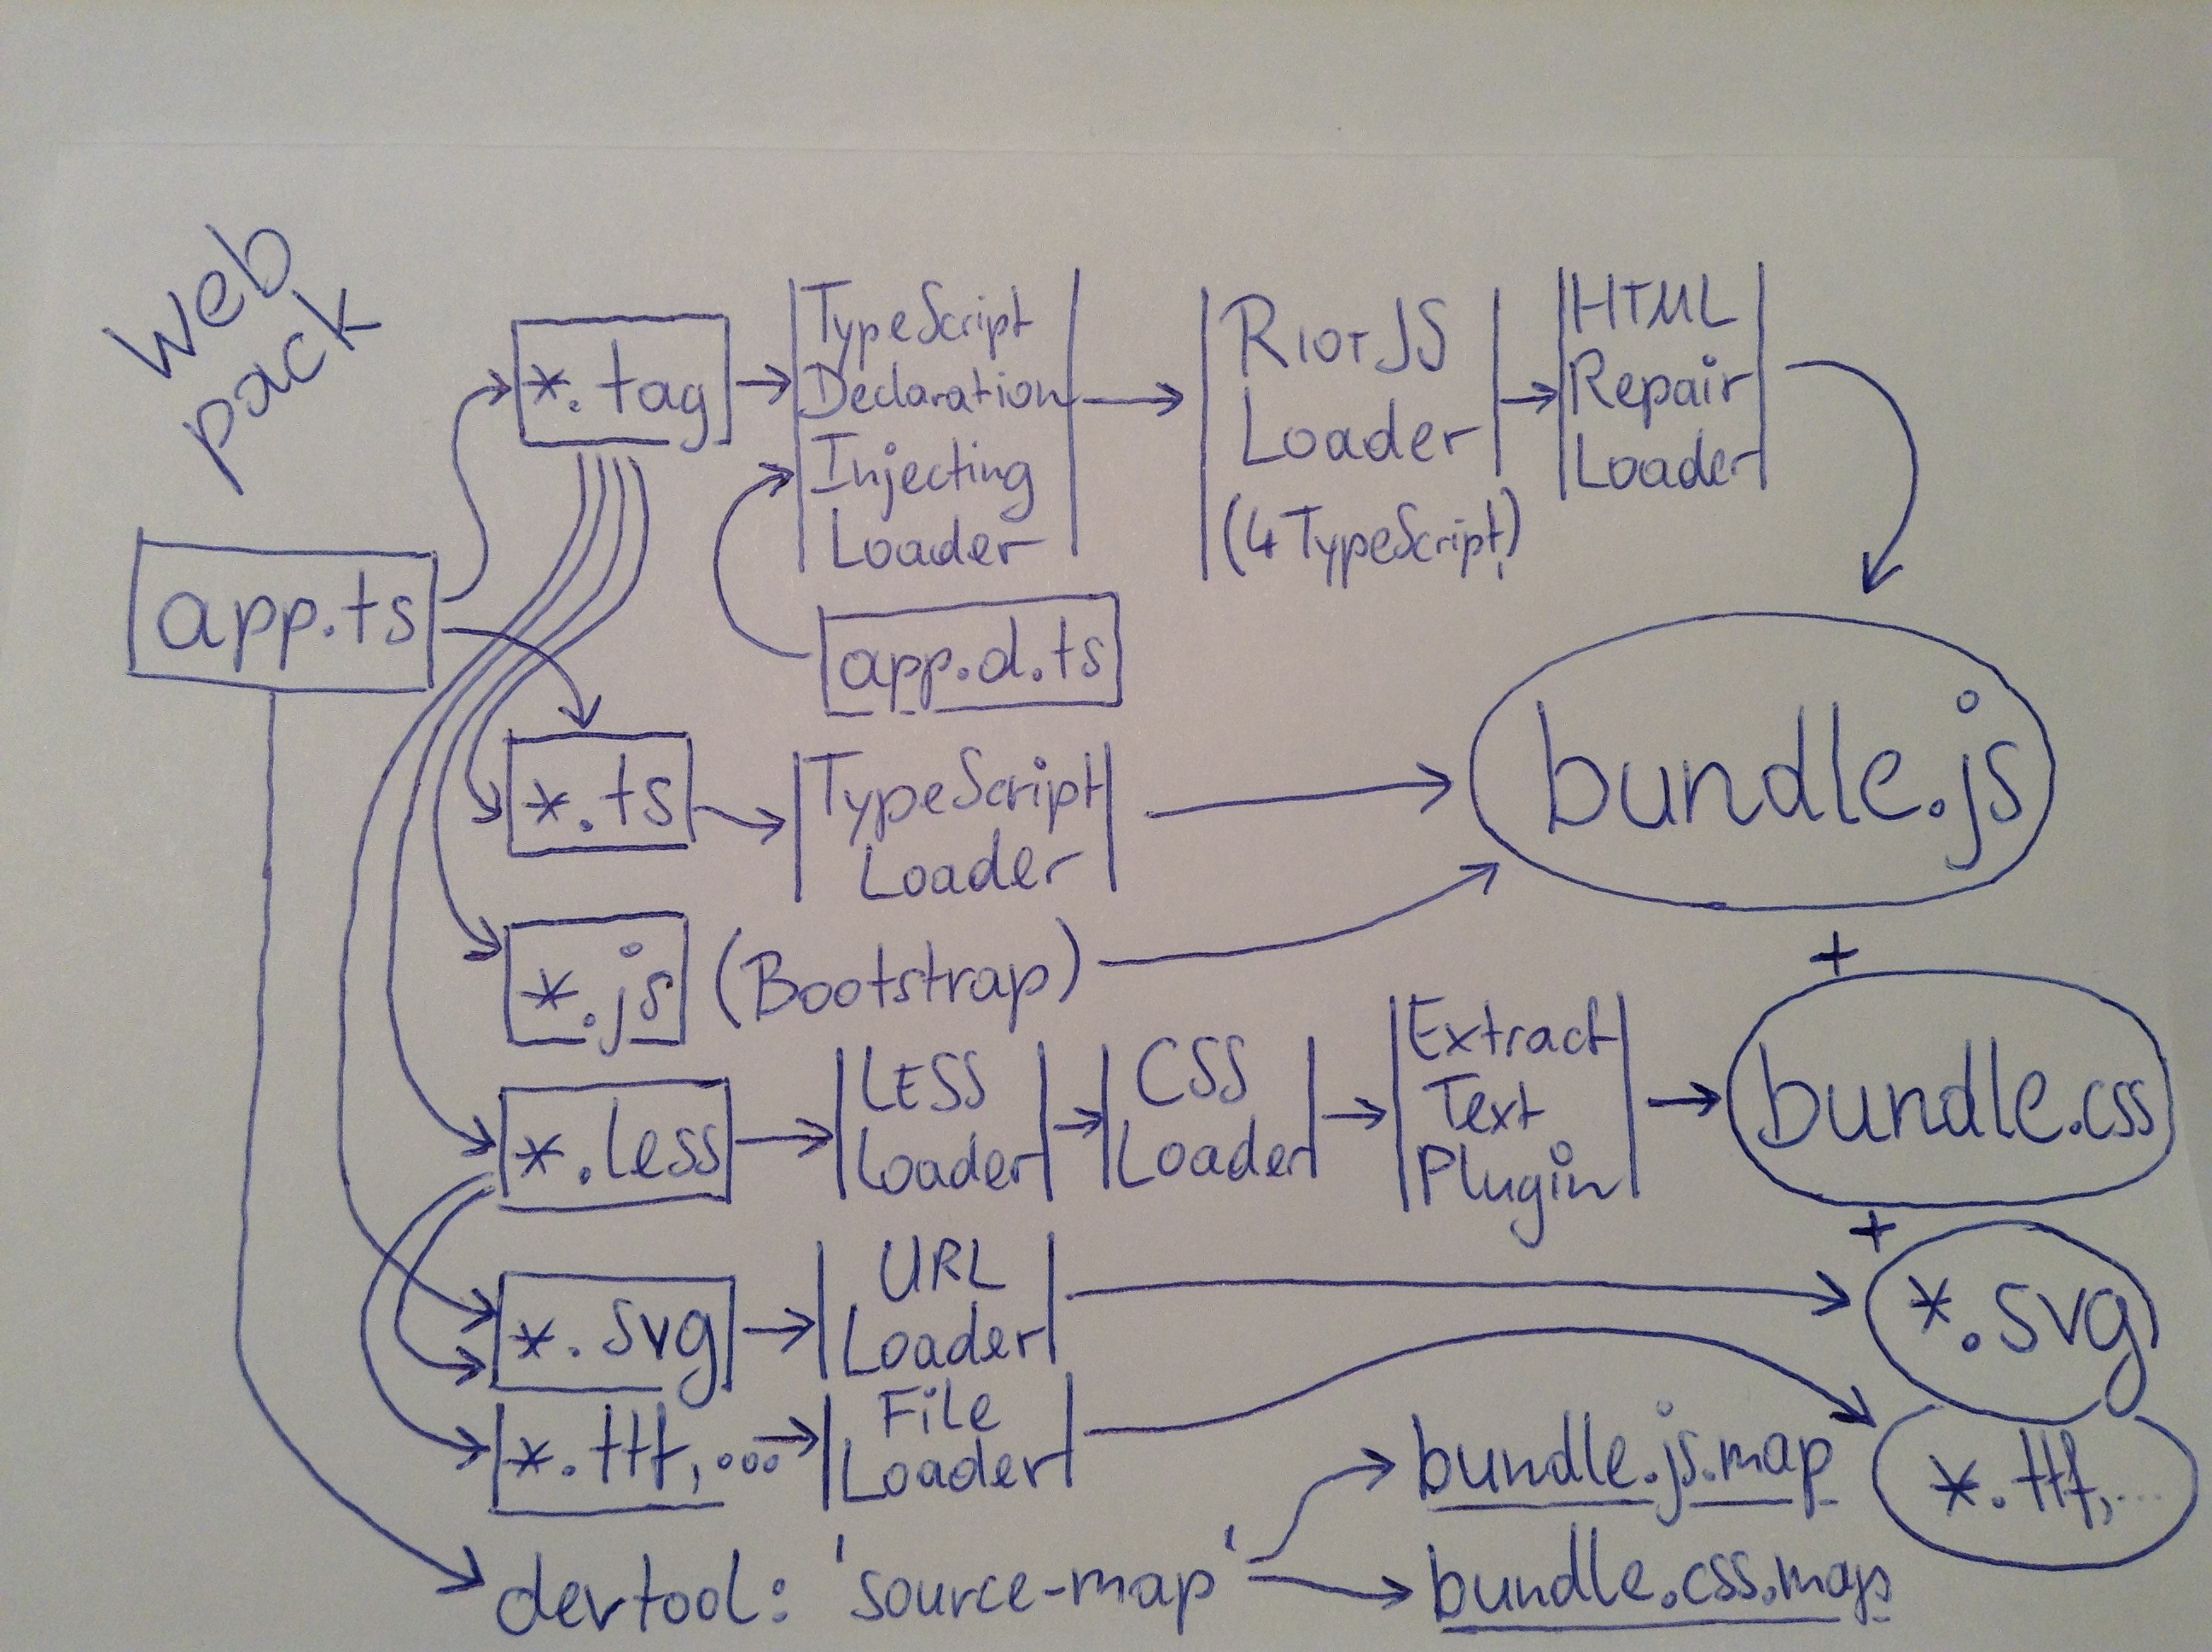 web
pack
*.tag
TypeScript
Declaration
Injecting
Loader
RIOTJS
Loader
(4 TypeScript)
HTML
Repair
Loader
app.ts
app.d.ts
*.ts
TypeScript
Loader
bundle.js
*.js (Bootstrap)
+
*.less
LESS
Loader
CSS
Loader
Extract
Text
Plugin
bundle.css
+
*.svg
URL
Loader
*.svg
*.ttf,...
File
Loader
*.ttf,...
devtool: 'source-map'
bundle.js.map
bundle.css.map